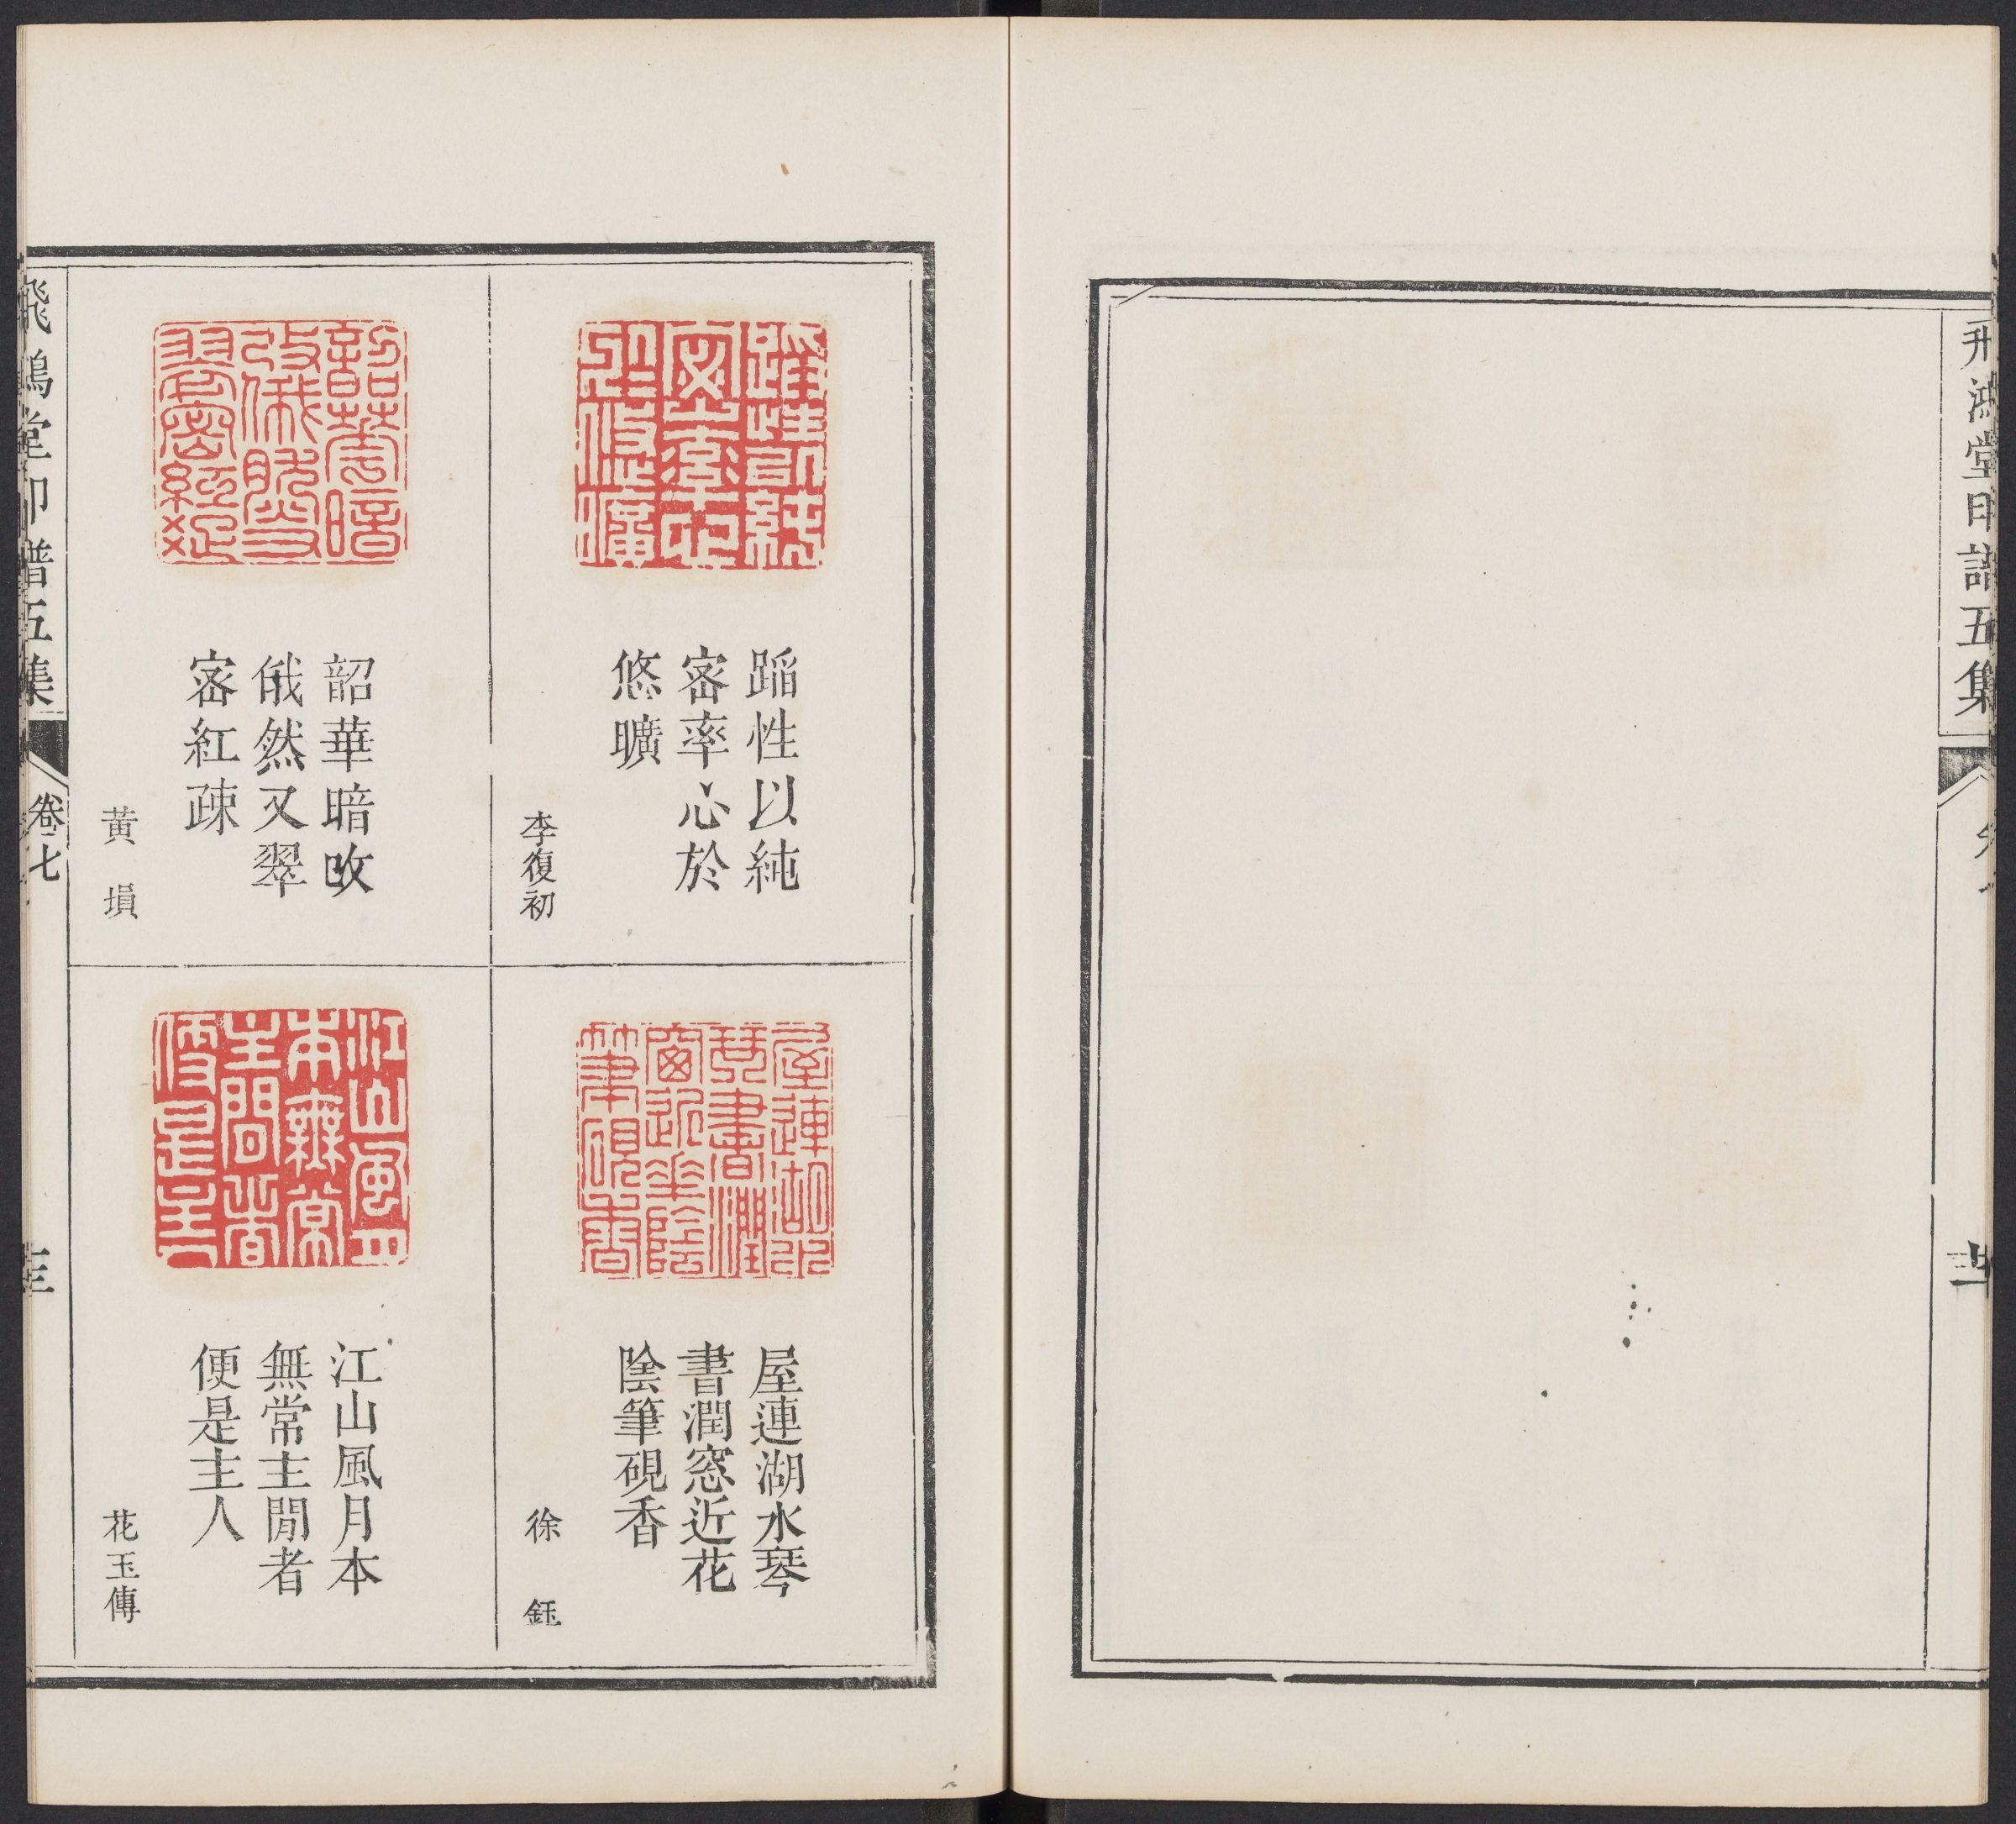 飛鴻堂印譜五集
蹈性以純
密率心於
悠曠
李復初
屋連湖水琴
書潤窓近花
陰筆硯香
徐鈺
韶華暗攺
俄然又翠
密紅疎
黃塤
江山風月本
無常主閒者
便是主人
花玉傳
飛鴻堂印譜五集
卷七